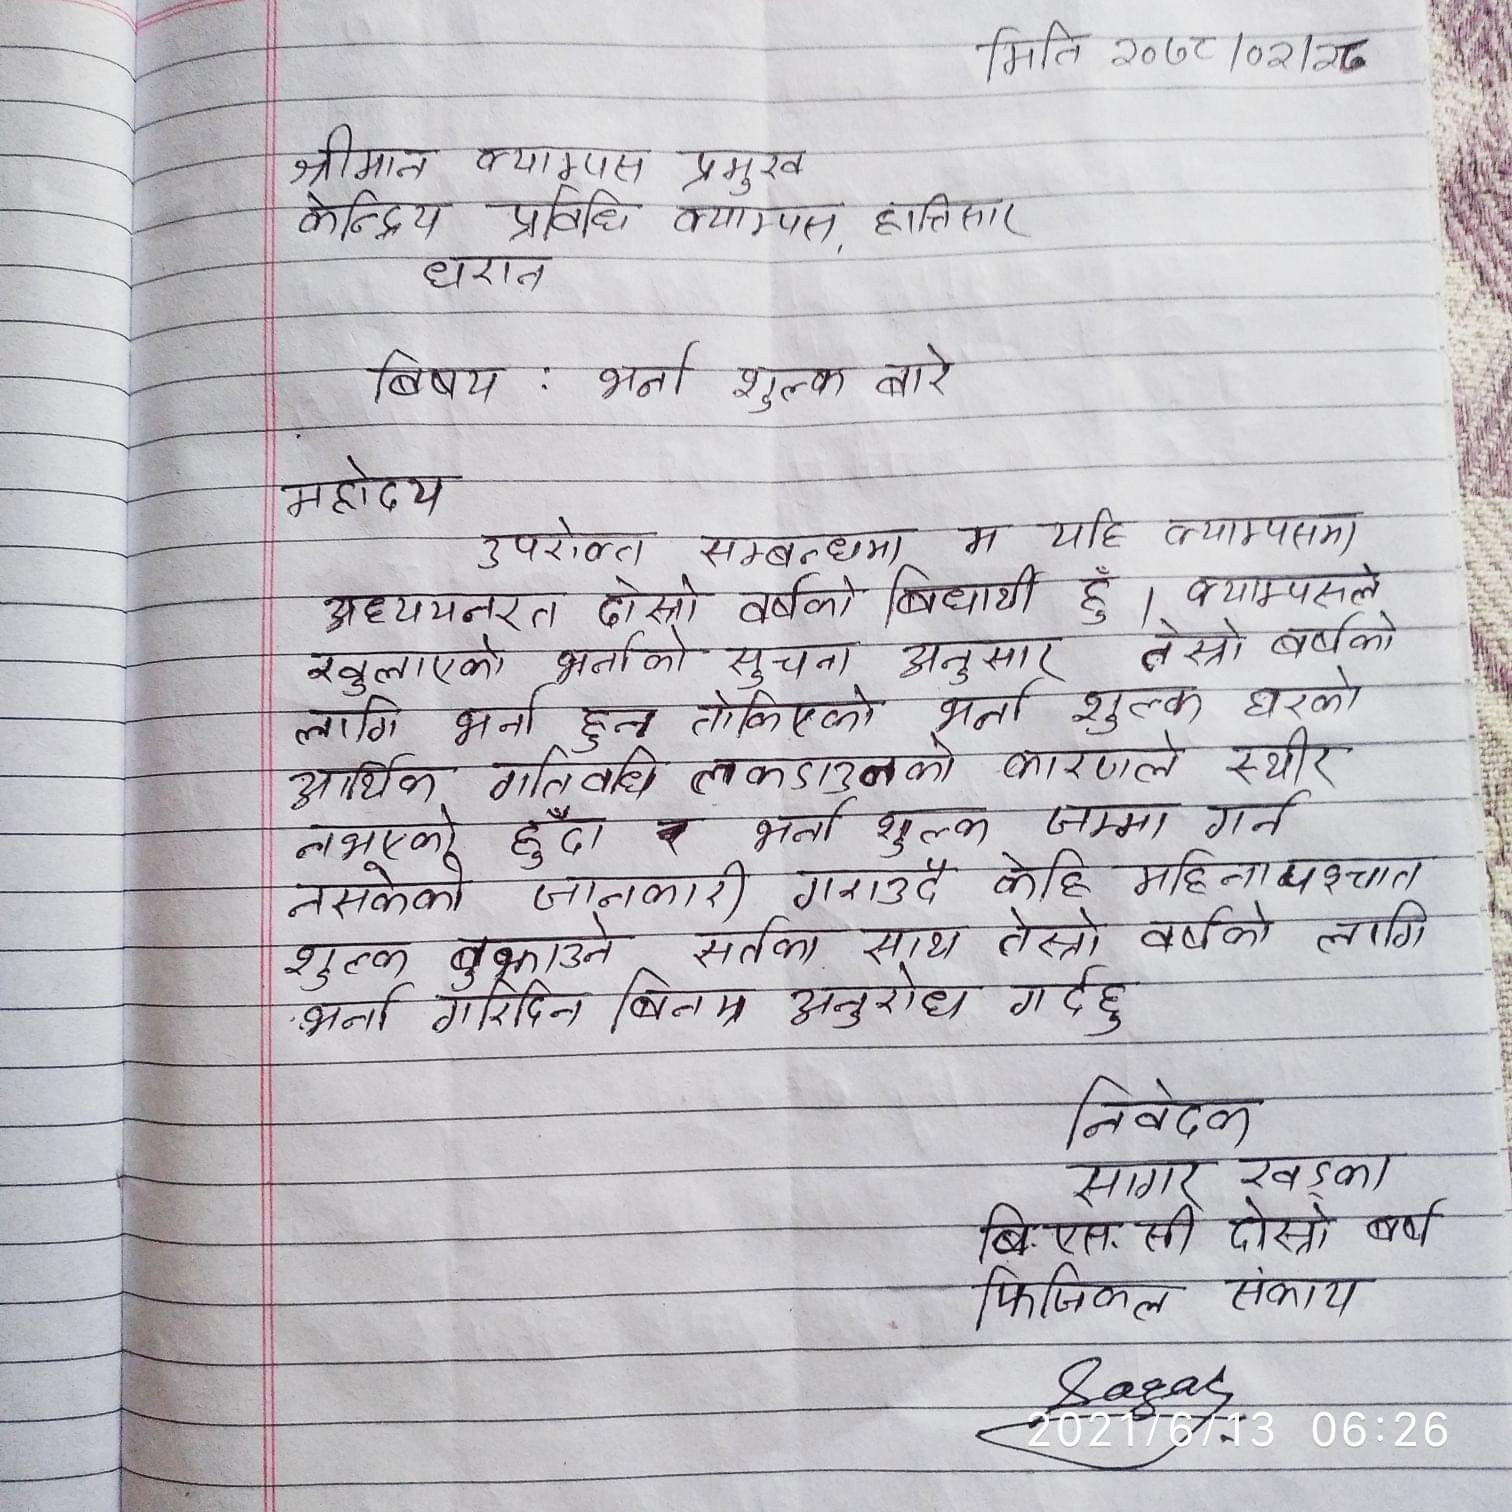 मिति २०७८/०२/२८
श्रीमान क्याम्पस प्रमुख
केन्द्रिय प्रविधि क्याम्पस, हात्तिसार
धरान
बिषय : भर्ना शुल्क बारे
महोदय
उपरोक्त सम्बन्धमा म यहि क्याम्पसमा
अध्ययनरत दोस्रो वर्षको बिधार्थी हुँ । क्याम्पसले
खुलाएको भर्नाको सुचना अनुसार तेस्रो बर्षको
लागि भर्ना हुन तोकिएको भर्ना शुल्क घरको
आर्थिक गतिवधि लकडाउनको कारणले स्थीर
नभएको हुँदा र भर्ना शुल्क जम्मा गर्न
नसकेको जानकारी गराउदै केहि महिना पश्चात
शुल्क बुझाउने सर्तका साथ तेस्रो वर्षको लागि
भर्ना गरिदिन बिनम्र अनुरोध गर्दछु
निवेदक
सागर खड्का
बि.एस.सी दोस्रो बर्ष
फिजिकल संकाय
Sagar
2021/6/13 06:26